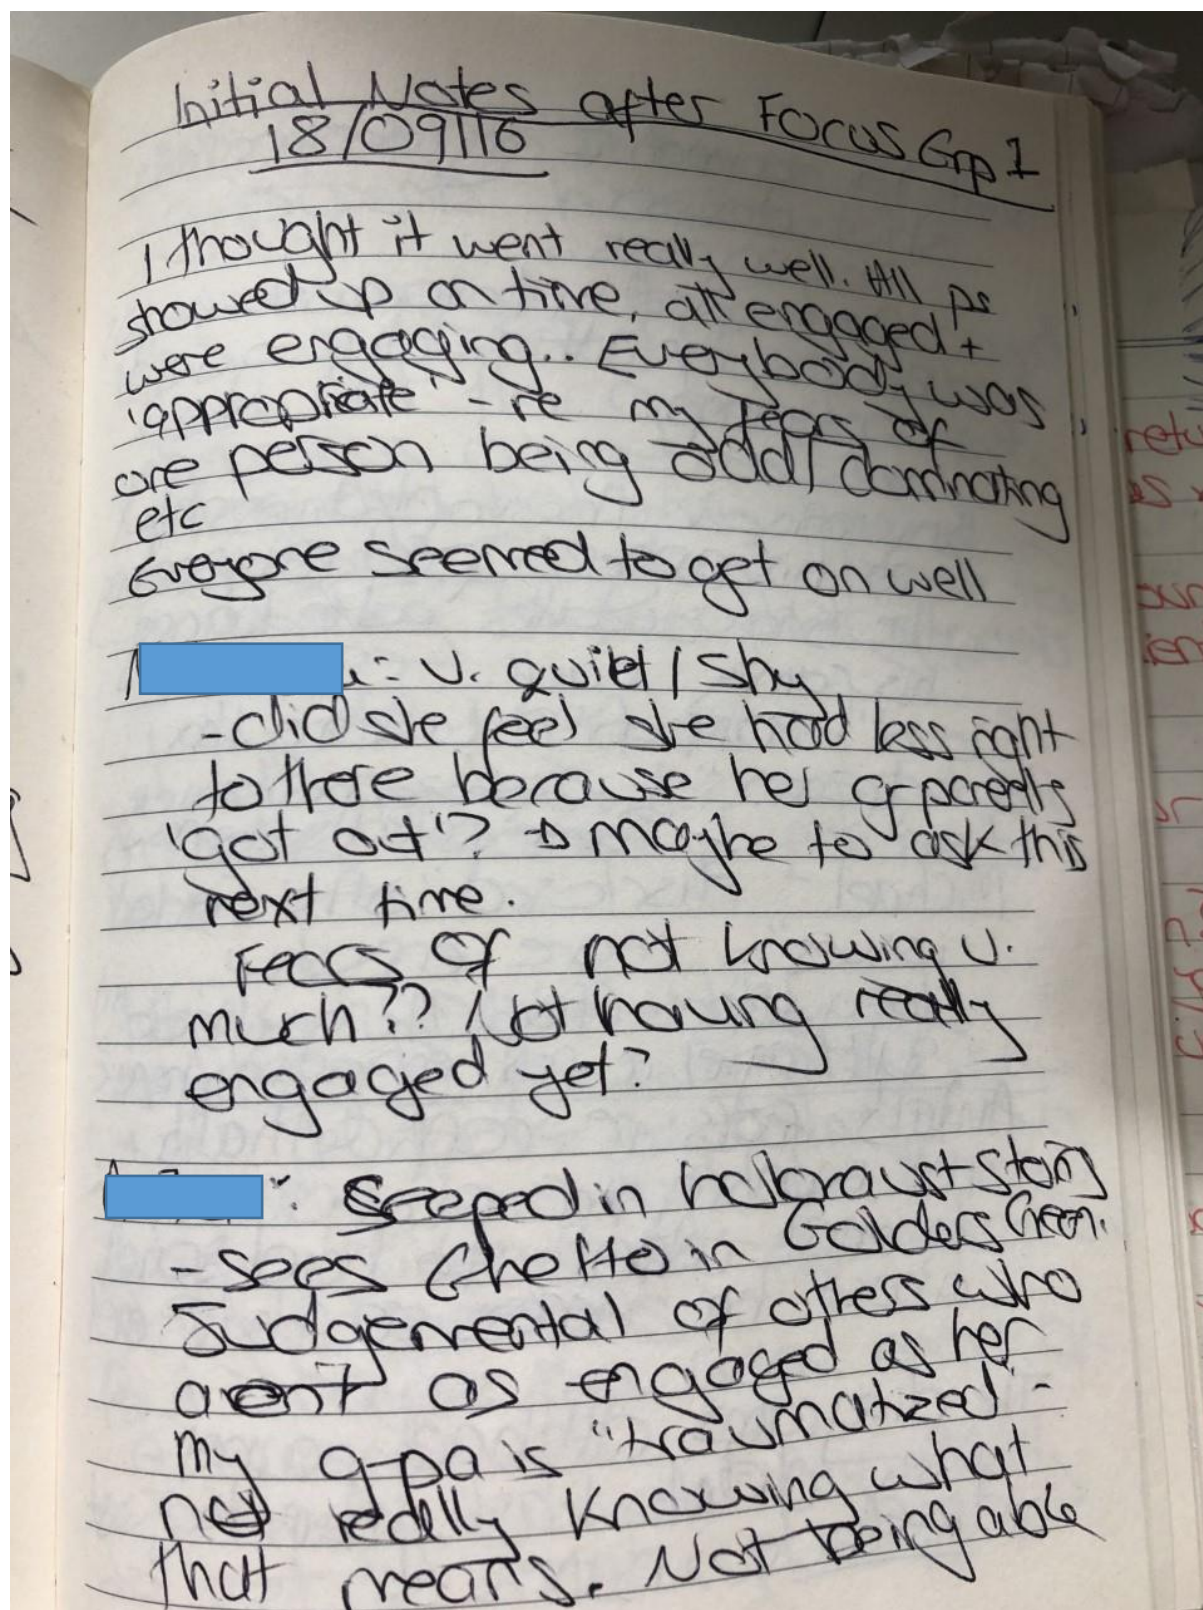 Initial Notes after Focus Grp 1
18/09/16
I thought it went really well. All ps
showed up on time, all engaged +
were engaging.. Everybody was
'appropriate' - re my fears of
one person being odd/dominating
etc
Everyone seemed to get on well
: v. quiet/shy
- did she feel she had less right
to there because her grparents
'got out'? → maybe to ask this
next time.
Fears of not knowing v.
much?? / Not having really
engaged yet?
: Seeped in holocaust story
- sees Ghetto in Golders Green.
Judgemental of others who
arent as engaged as her
my g-pa is "traumatized" -
not really knowing what
that means. Not being able